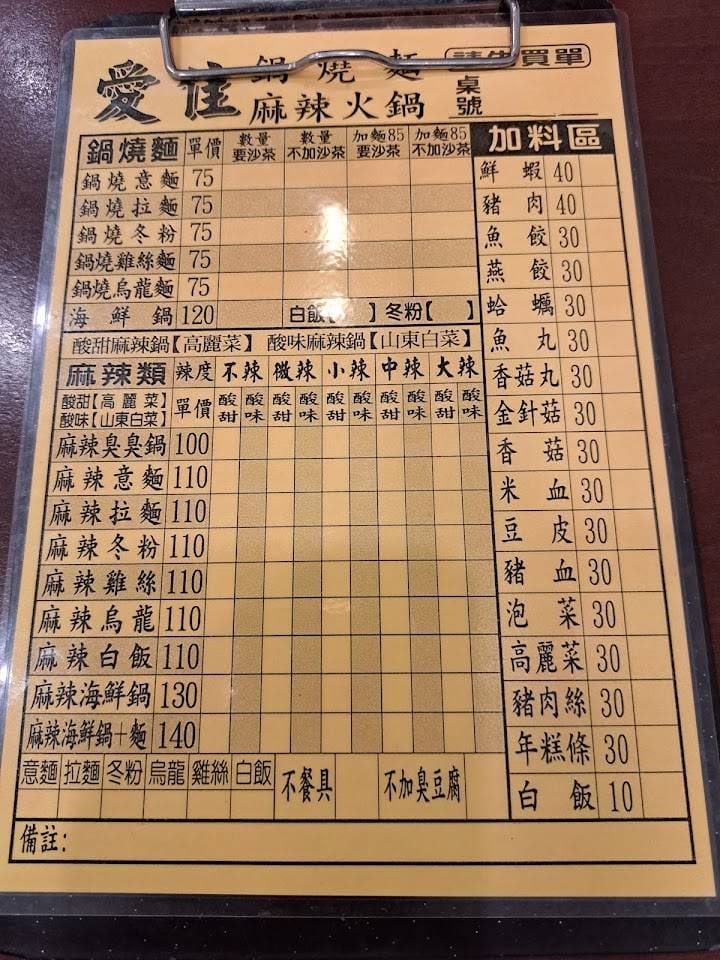 愛佳 鍋燒麵 麻辣火鍋
請先買單
桌號
鍋燒麵 單價 數量要沙茶 數量不加沙茶 加麵85要沙茶 加麵85不加沙茶
鍋燒意麵 75
鍋燒拉麵 75
鍋燒冬粉 75
鍋燒雞絲麵 75
鍋燒烏龍麵 75
海鮮鍋 120 白飯【 】冬粉【 】
酸甜麻辣鍋【高麗菜】 酸味麻辣鍋【山東白菜】
麻辣類 辣度 不辣 微辣 小辣 中辣 大辣
酸甜【高麗菜】
酸味【山東白菜】
單價 酸甜 酸味 酸甜 酸味 酸甜 酸味 酸甜 酸味 酸甜 酸味
麻辣臭臭鍋 100
麻辣意麵 110
麻辣拉麵 110
麻辣冬粉 110
麻辣雞絲 110
麻辣烏龍 110
麻辣白飯 110
麻辣海鮮鍋 130
麻辣海鮮鍋+麵 140
意麵 拉麵 冬粉 烏龍 雞絲 白飯 不餐具 不加臭豆腐
備註:
加料區
鮮蝦 40
豬肉 40
魚餃 30
燕餃 30
蛤蠣 30
魚丸 30
香菇丸 30
金針菇 30
香菇 30
米血 30
豆皮 30
豬血 30
泡菜 30
高麗菜 30
豬肉絲 30
年糕條 30
白飯 10